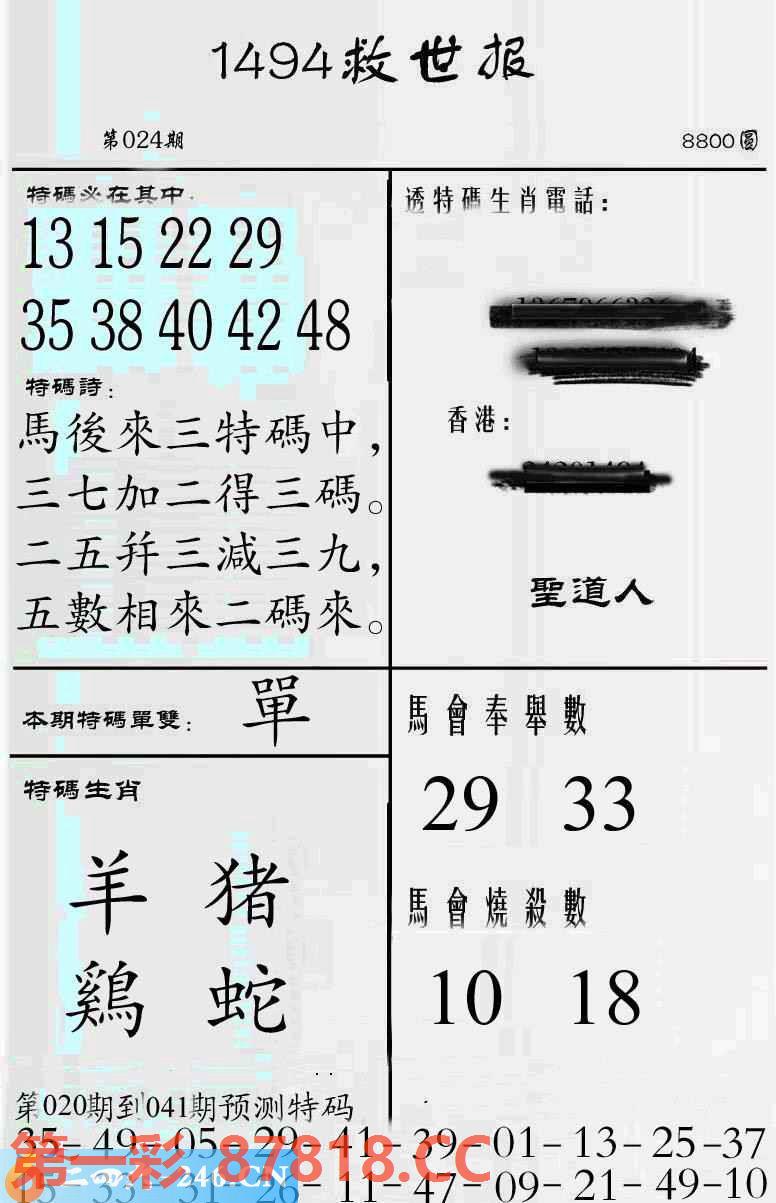 1494救世报
第024期
8800圓
特碼必在其中:
13 15 22 29
35 38 40 42 48
特碼詩:
馬後來三特碼中，
三七加二得三碼。
二五幷三減三九，
五數相來二碼來。
透特碼生肖電話:
香港:
聖道人
本期特碼單雙: 單
特碼生肖
羊 猪
鷄 蛇
馬會奉舉數
29 33
馬會燒殺數
10 18
第020期到041期预测特码
35-49-05-29-41-39-01-13-25-37
33-31-26-11-47-09-21-49-10
第一彩 87818.CC
246.CN